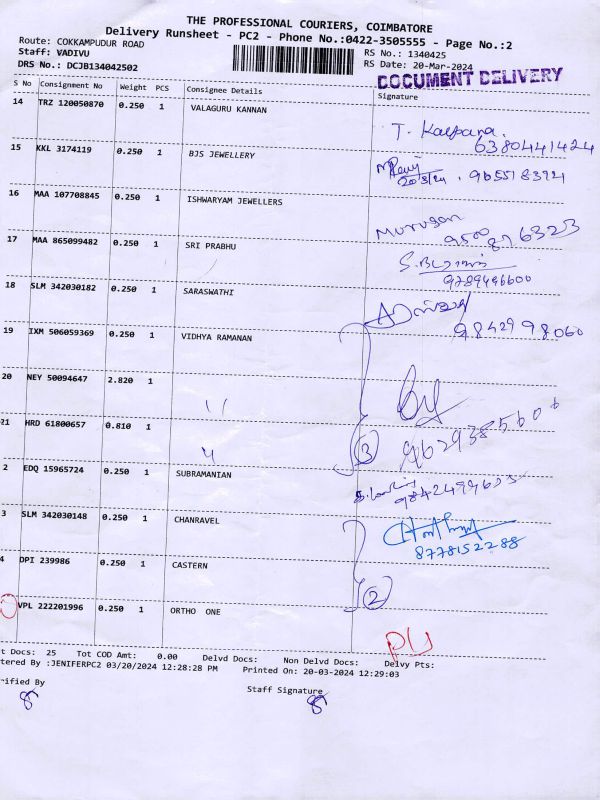 THE PROFESSIONAL COURIERS, COIMBATORE
Delivery Runsheet - PC2 - Phone No.:0422-3505555 - Page No.:2
Route: COKKAMPUDUR ROAD RS No.: 1340425
Staff: VADIVU RS Date: 20-Mar-2024
DRS No.: DCJB134042502 DOCUMENT DELIVERY
S No Consignment No Weight PCS Consignee Details Signature
14 TRZ 120050870 0.250 1 VALAGURU KANNAN
T. Kalpana.
6380441424
15 KKL 3174119 0.250 1 BJS JEWELLERY
20/3/24. 9655183921
16 MAA 107708845 0.250 1 ISHWARYAM JEWELLERS
Murugan
9500 876323
17 MAA 865099482 0.250 1 SRI PRABHU
9789496600
18 SLM 342030182 0.250 1 SARASWATHI
9842998060
19 IXM 506059369 0.250 1 VIDHYA RAMANAN
20 NEY 50094647 2.820 1 "
21 HRD 61800657 0.810 1 "
3
9629385606
2 EDQ 15965724 0.250 1 SUBRAMANIAN
3 SLM 342030148 0.250 1 CHANRAVEL
8778152288
4 DPI 239986 0.250 1 CASTERN
2
VPL 222201996 0.250 1 ORTHO ONE
PU
t Docs: 25 Tot COD Amt: 0.00 Delvd Docs: Non Delvd Docs: Delvy Pts:
tered By :JENIFERPC2 03/20/2024 12:28:28 PM Printed On: 20-03-2024 12:29:03
rified By Staff Signature